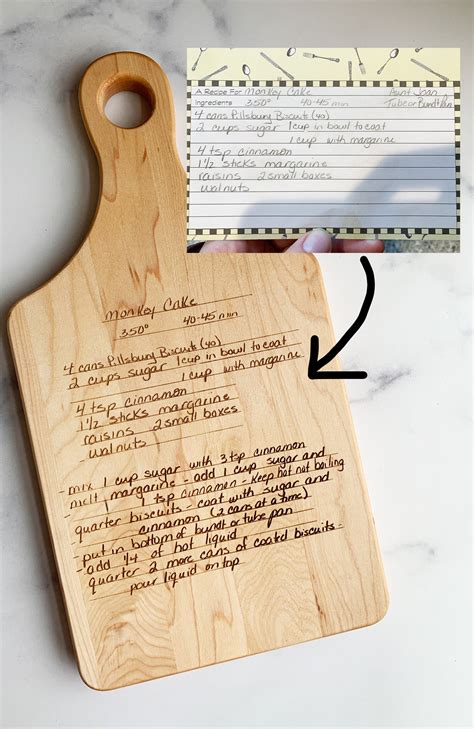 A Recipe For Monkey Cake Aunt Joan
Ingredients 350° 40-45 min Tube or Bundt Pan
4 cans Pillsbury Biscuits (40)
2 cups sugar 1 cup in bowl to coat
1 cup with margarine
4 tsp cinnamon
1 1/2 sticks margarine
raisins 2 small boxes
walnuts
Monkey Cake
350° 40-45 min
4 cans Pillsbury Biscuits (40)
2 cups sugar 1 cup in bowl to coat
1 cup with margarine
4 tsp cinnamon
1 1/2 sticks margarine
raisins 2 small boxes
walnuts
-mix 1 cup sugar with 3 tsp cinnamon
melt margarine - add 1 cup sugar and
1 tsp cinnamen - Keep hot not boiling
-quarter biscuits - coat with sugar and
cinnamon (2 cans at a time)
-put in bottom of bundt or tube pan
-add 1/4 of hot liquid
-quarter 2 more cans of coated biscuits -
pour liquid on top